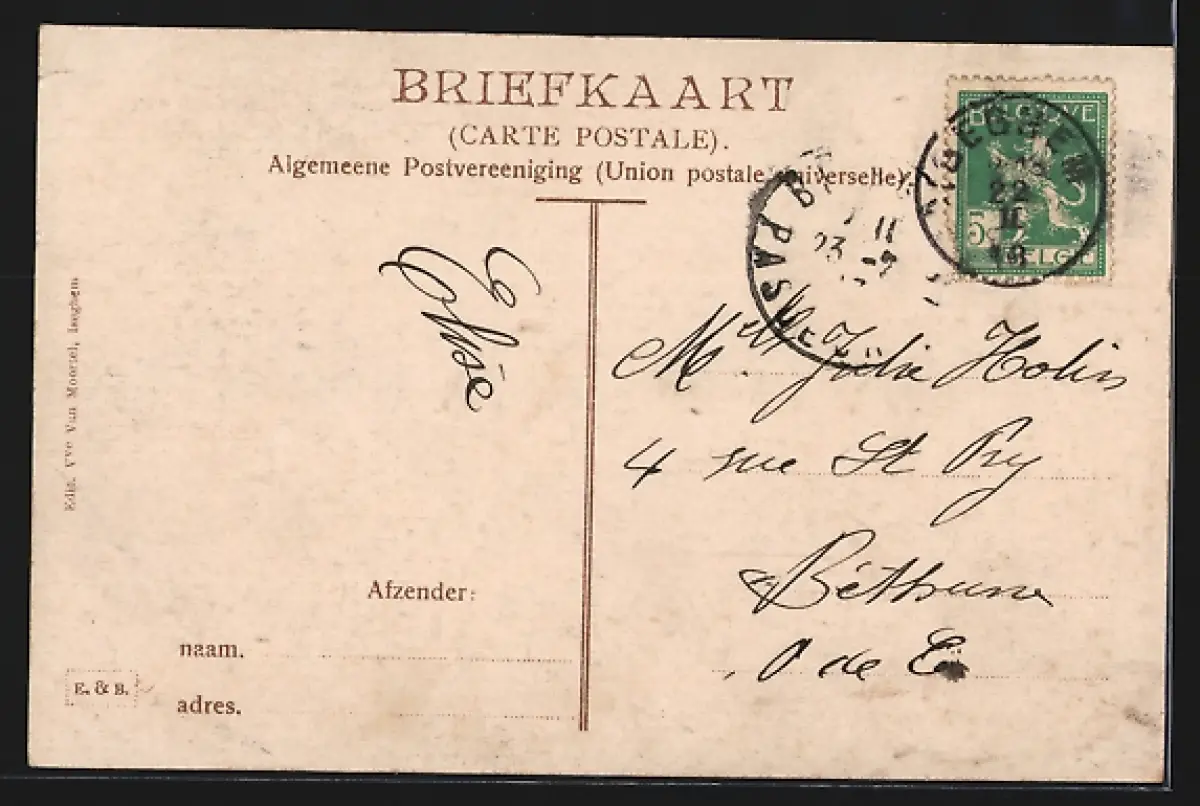 BRIEFKAART
(CARTE POSTALE).
Algemeene Postvereeniging (Union postale universelle).
BELGIQUE
5
BELGIË
ISEGHEM
22
II
23
II
PAS
Edit. Vve Van Moortel, Iseghem
Elise
Mlle Julia Holin
4 rue St Pry
Béthune
de
Afzender:
naam.
adres.
E. & B.